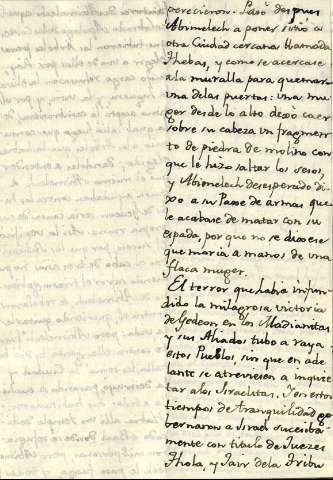 perecieron. Pasó despues
Abimelech a poner sitio a
otra Ciudad cercana llamada
Thebas, y como se acercase
a la muralla para quemar
una delas puertas: una mu
ger desde lo alto dexo caer
sobre su cabeza un fragmen
to de piedra de molino con
que le hizo saltar los sesos,
y Abimelech desesperado di
xo a su Page de armas que
le acabase de matar con su
espada, por que no se dixese
que moria a manos de una
flaca muger.
El terror que habia infun
dido la milagrosa victoria
de Gedeon en los Madianitas
y sus Aliados tubo a raya
estos Pueblos, sin que en ade
lante se atreviesen a inquie
tar a los Israelitas. Y en estos
tiempos de tranquilidad go
bernaron a Israel succesiba
mente con titulo de Juezes
Thola, y Jair dela Tribu